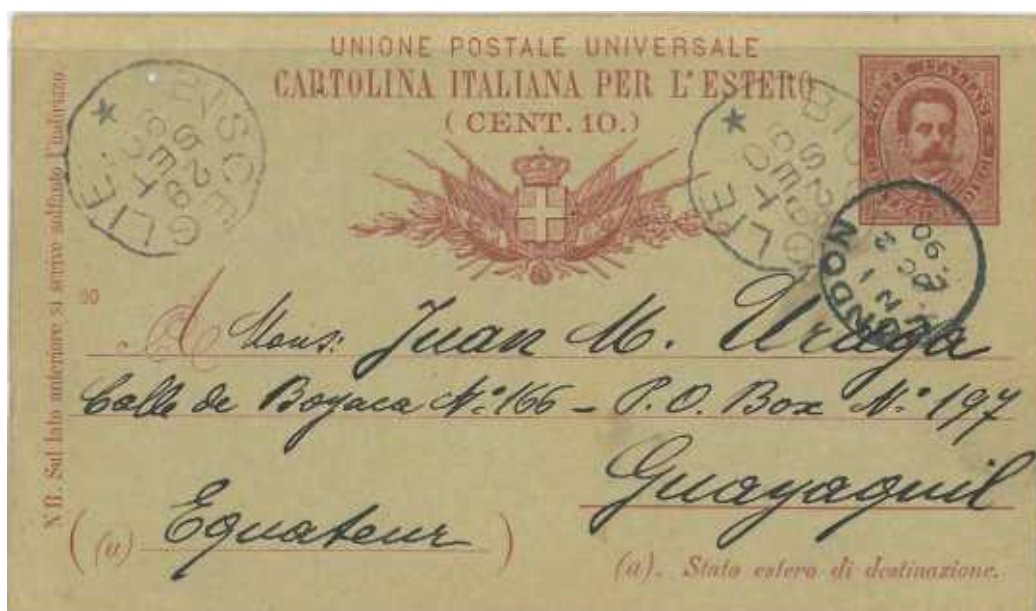 UNIONE POSTALE UNIVERSALE
CARTOLINA ITALIANA PER L'ESTERO
(CENT. 10.)
BISCEGLIE
29 SET 90
BISCEGLIE
29 SET 90
LONDON
OC 2 90
90
N.B. Sul lato anteriore si scrive soltanto l'indirizzo
A Mons: Juan M. Uraga
Calle de Boyaca No: 166 - P.O. Box No: 197
Guayaquil
(a) Equateur
(a). Stato estero di destinazione.